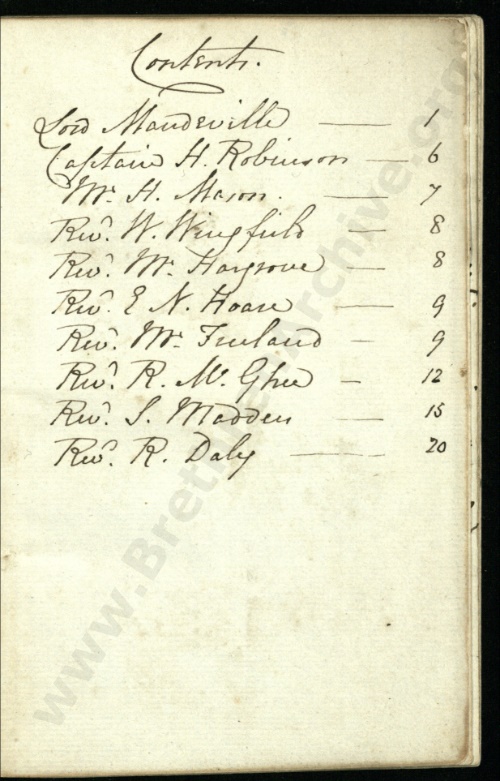 Contents.
Lord Mandeville — 1
Captain H. Robinson — 6
Mr. H. Mason. — 7
Revd. W. Wingfield — 8
Revd. Mr. Hargrove — 8
Revd. E N. Hoare — 9
Revd. Mr. Freeland — 9
Revd. R. Mc. Ghee — 12
Revd. S. Madden — 15
Revd. R. Daly — 20
www.BrethrenArchive.org